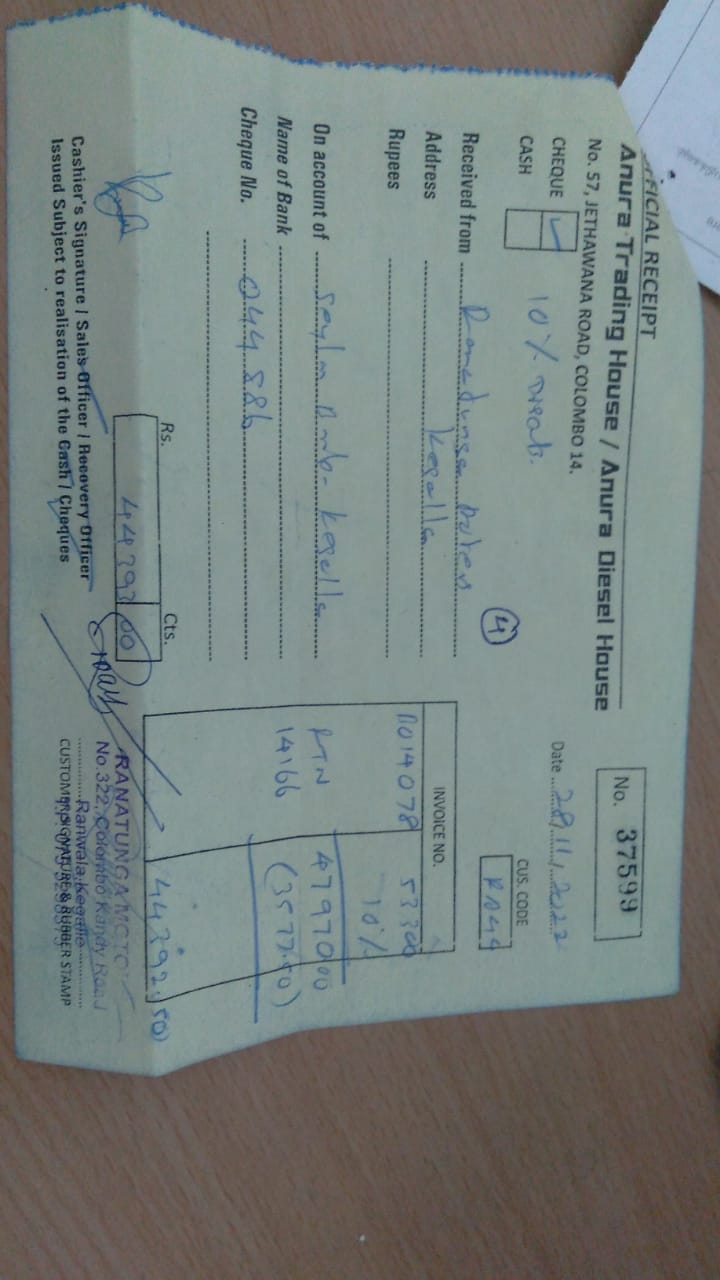 OFFICIAL RECEIPT
Anura Trading House / Anura Diesel House
No. 57, JETHAWANA ROAD, COLOMBO 14.
No. 37599
Date 28/11/2022
CHEQUE
CASH
10%
CUS. CODE
4
Received from
Address Kegalla
Rupees
On account of Kegalla
Name of Bank
Cheque No. 044886
INVOICE NO.
14078 53300
10%
RTN 47970.00
14166 (3577.50)
44392.50
Rs. Cts.
44392 00
Cashier's Signature / Sales Officer / Recovery Officer
Issued Subject to realisation of the Cash / Cheques
RANATUNGA MOTO
No.322, Colombo Kandy Road
Ranwala, Kegalle
CUSTOMER SIGNATURE & RUBBER STAMP